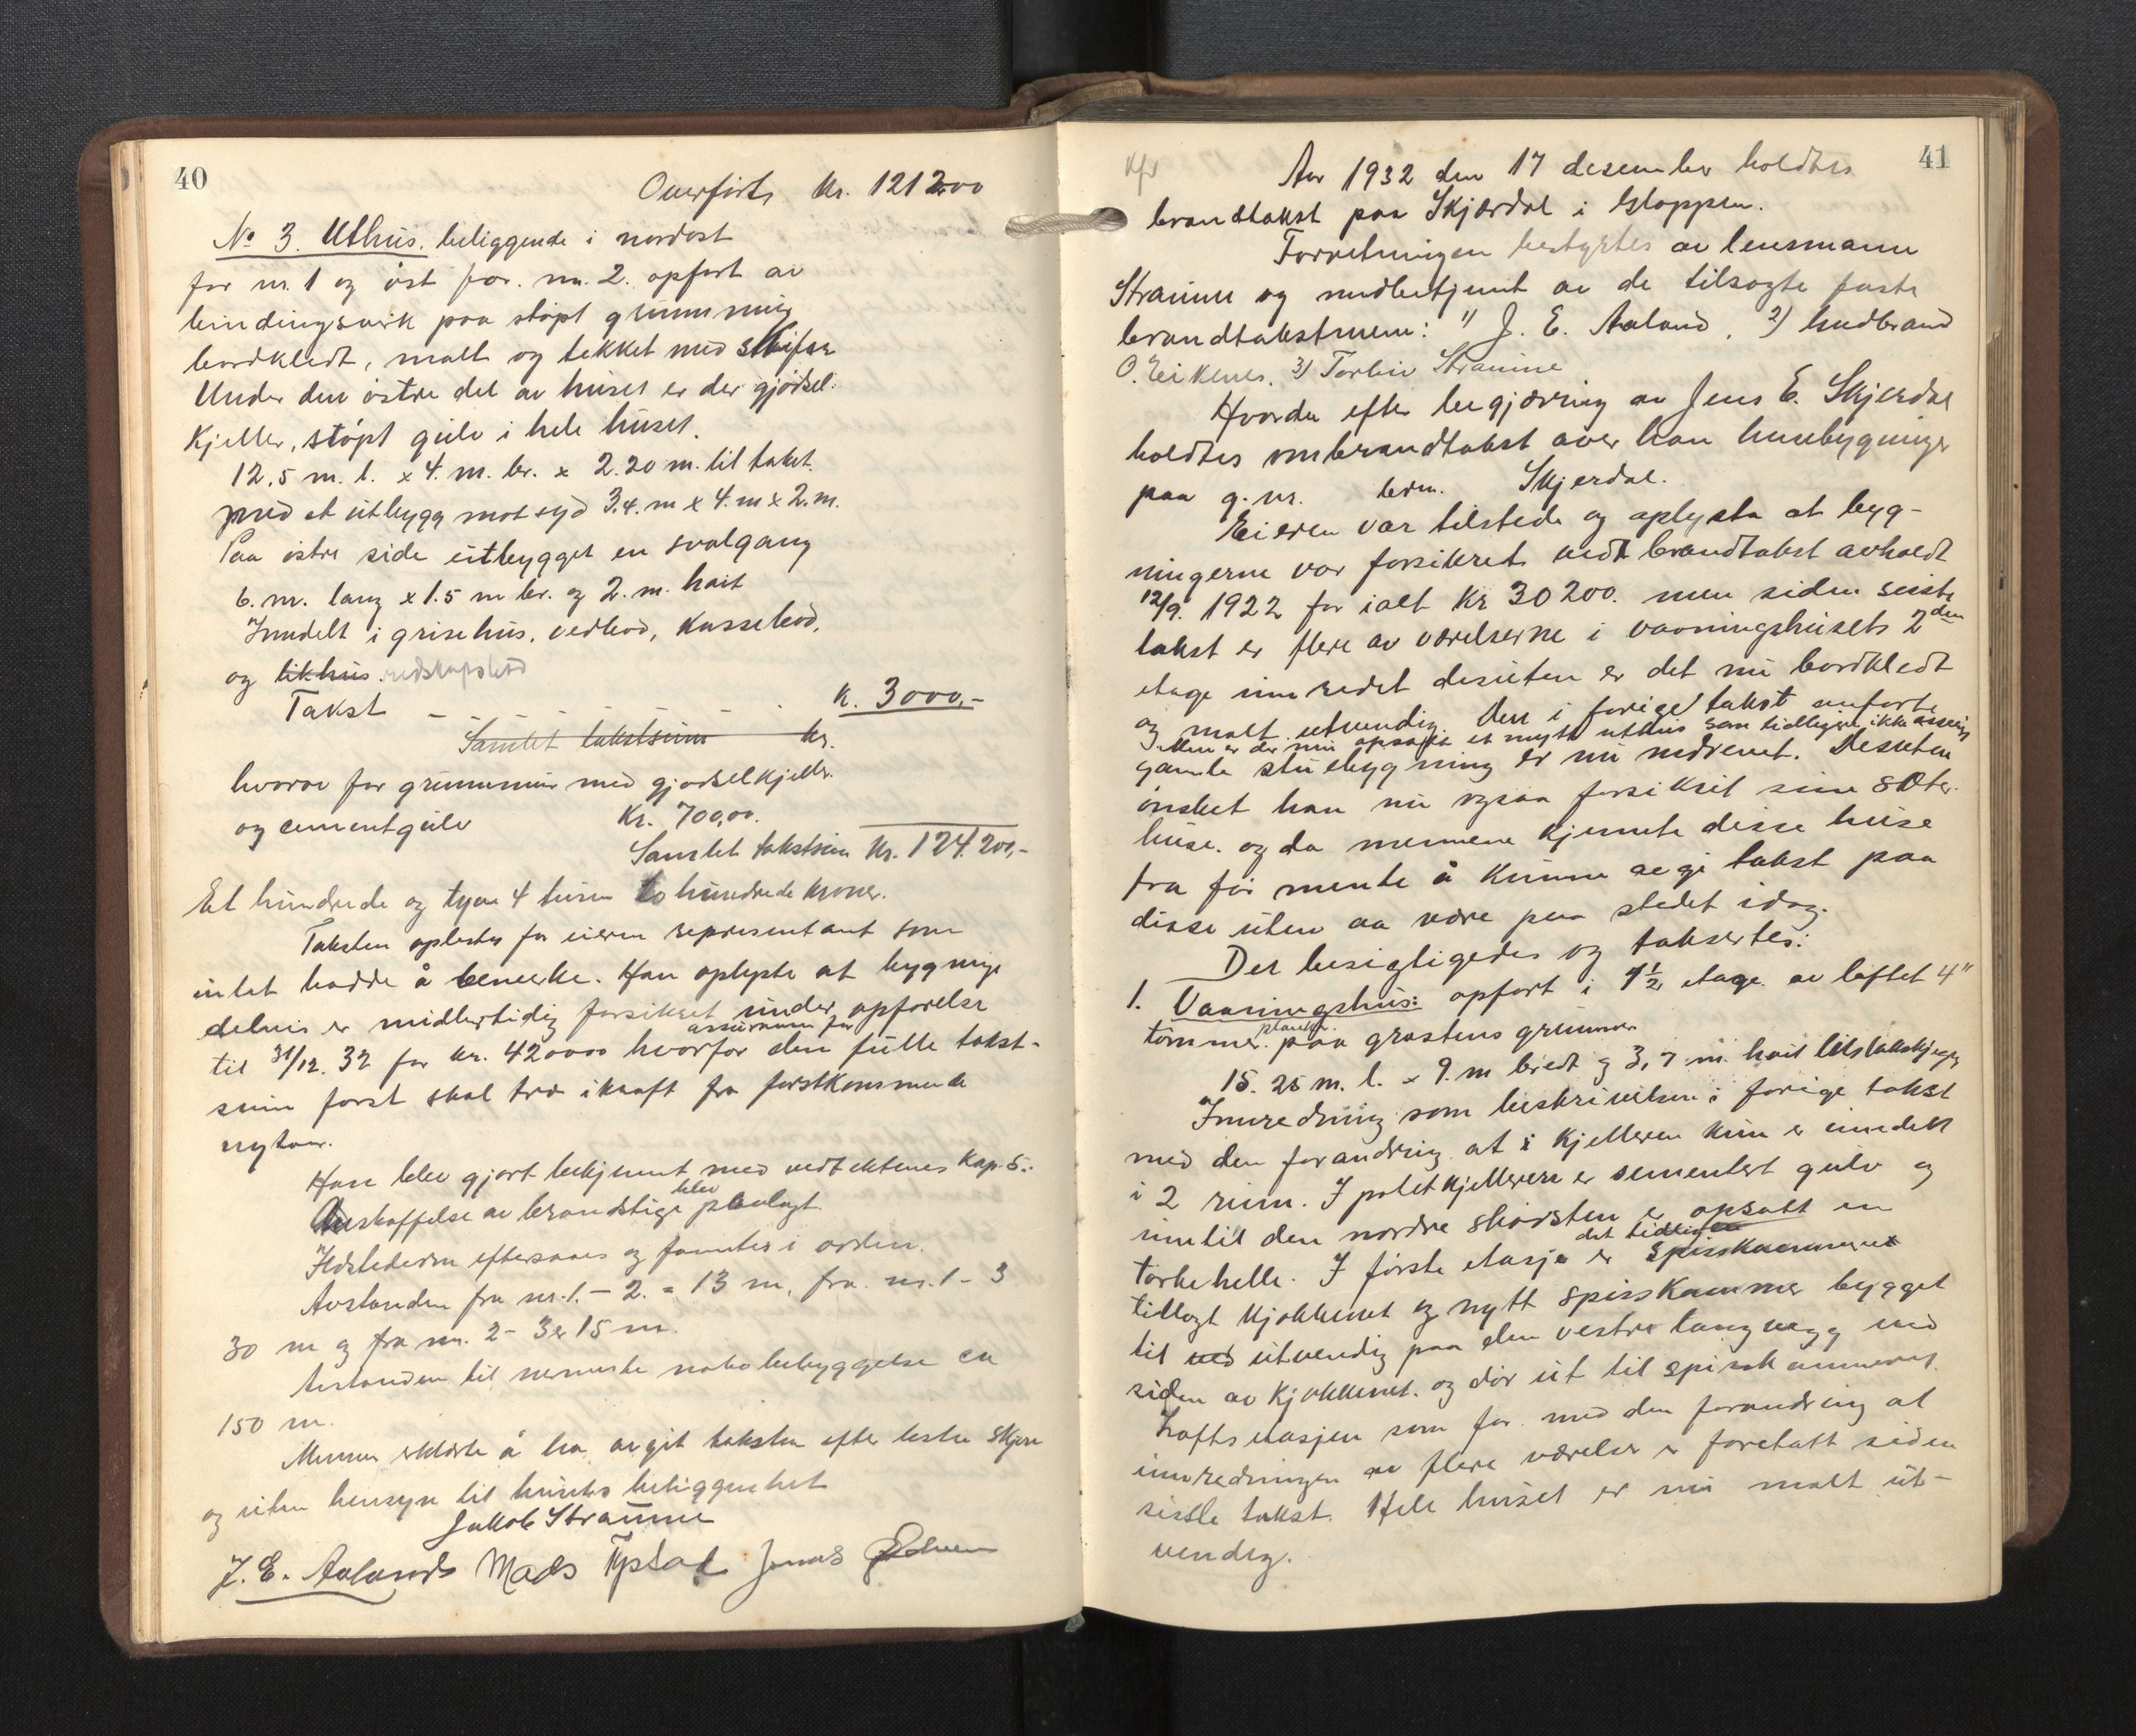 40
Overført kr. 121200
No 3. Uthus. beliggende i nordost
for nr. 1 og øst for nr. 2. opført av
bindingsverk paa støpt grunnmur
bordkledt, malt og tekket med skifer
Under den østre del av huset er der gjødsel-
kjeller, støpt gulv i hele huset.
12,5 m. l. x 4. m. br. x 2.20 m. til taket.
med et utbygg mot syd 3.4. m x 4. m x 2. m.
Paa østre side utbygget en svalgang
6. m. lang x 1.5 m br. og 2. m. høit
Inndelt i grisehus, vedbod,
og likhus. redskapsbod
Takst - - - - kr. 3000,-
Samlet takstsum kr.
hvorav for grunnmur med gjødselkjeller
og cementgulv kr. 700,00.
Samlet takstsum kr. 124.200,-
Et hundrede og tyve 4 tusen to hundrede kroner.
Taksten oplestes for eieren representant som
intet hadde å bemerke. Han oplyste at bygninge
delvis er midlertidig forsikret under opførelse
til 31/12. 32 for kr. 42000 assuranse for hvorfor den fulle takst-
sum først skal tre ikraft fra førstkommende
nytaar.
Han blev gjort bekjennt med vedtektenes kap. 5.
Anskaffelse av brandstige blev paalagt.
Ildstederne eftersaaes og fantes i orden.
Avstanden fra nr. 1. - 2. = 13 m, fra nr. 1 - 3
30 m og fra nr. 2 - 3 er 15 m.
Avstanden til nermeste nabobebyggelse er
150 m.
Mennene erklærte å ha avgit taksten efter beste skjøn
og uten hensyn til husets beliggenhet
Jakob Straume
J. E. Aaland Mads Jonas
41
Aar 1932 den 17 desember holdtes
brandtakst paa Skjærdal i Gloppen.
Forretningen bestyrtes av lensmann
Straume og medbetjent av de tilsagte faste
brandtakstmenn: 1) J. E. Aaland, 2) Gudbrand
O. Eikenes, 3) Torleiv Straume
Hvorda efter begjæring av Jens E. Skjerdal
holdtes ombrandtakst over han husebygninger
paa g. nr. br.nr. Skjerdal.
Eieren var tilstede og oplyste at byg-
ningerne var forsikret ved brandtakst avholdt
12/9. 1922 for ialt kr 30200. men siden siste
takst er flere av værelserne i vaaningshusets 2den
etage innredet desuten er det nu bordkledt
og malt utvendig. Den i forige takst anførte
Men er der nu opsatt et nytt uthus som tidligere ikke
gamle stuebygning er nu nedrevet. Desuten
ønsket han nu ogsaa forsikret sine sæter-
huse. og da mennene kjennte disse huse
fra før mente å kunne avgi takst paa
disse uten aa være paa stedet idag.
Det besigtigedes og taksertes:
1. Vaaningshus: opført i 1½ etage av løftet 4"
tømmer planker. paa graastens grunnmur.
15.25 m. l. x 9. m bredt og 3,7 m. høit til takskjegg
Innredning som beskrivelsen i forige takst
med den forandring at i kjelleren kun er inndelt
i 2 rum. I potetkjelleren er sementert gulv og
inntil den nordre skorsten er opsatt en
tørkehelle. I første etasje er det tidligere spisskammer
tillagt kjøkkenet og nytt spisskammer bygget
til ved utvendig paa den vestre langvegg ved
siden av kjøkkenet. og dør ut til spisskammeret.
Loftsetasjen som før med den forandring at
innredningen av flere værelser er foretatt siden
sisste takst. Hele huset er nu malt ut-
vendig.